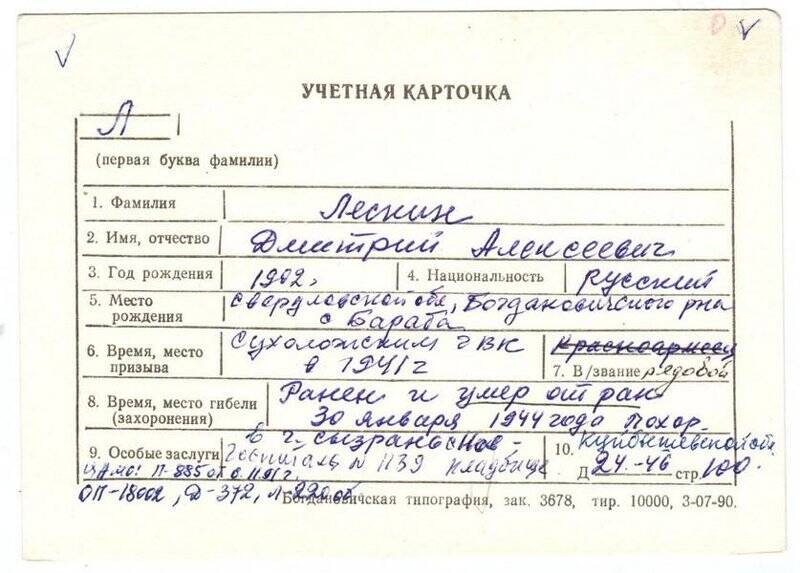 УЧЕТНАЯ КАРТОЧКА
Л
(первая буква фамилии)
1. Фамилия Лескин
2. Имя, отчество Дмитрий Алексеевич
3. Год рождения 1902г 4. Национальность Русский
5. Место рождения Свердловской обл, Богдановичского р-на
с Бараба
6. Время, место призыва Сухоложским ГВК
в 1941г
Красноармеец
7. В/звание рядовой
8. Время, место гибели (захоронения) Ранен и умер от ран
30 января 1944 года Похор.
в г. Сызрань
9. Особые заслуги госпиталь № 1139 кладбище
10. Куйбышевской обл.
Д 24-46 стр. 100.
ЦАМО: П-885
ОП-18002, Д-372, Л-220 об.
Богдановичская типография, зак. 3678, тир. 10000, 3-07-90.